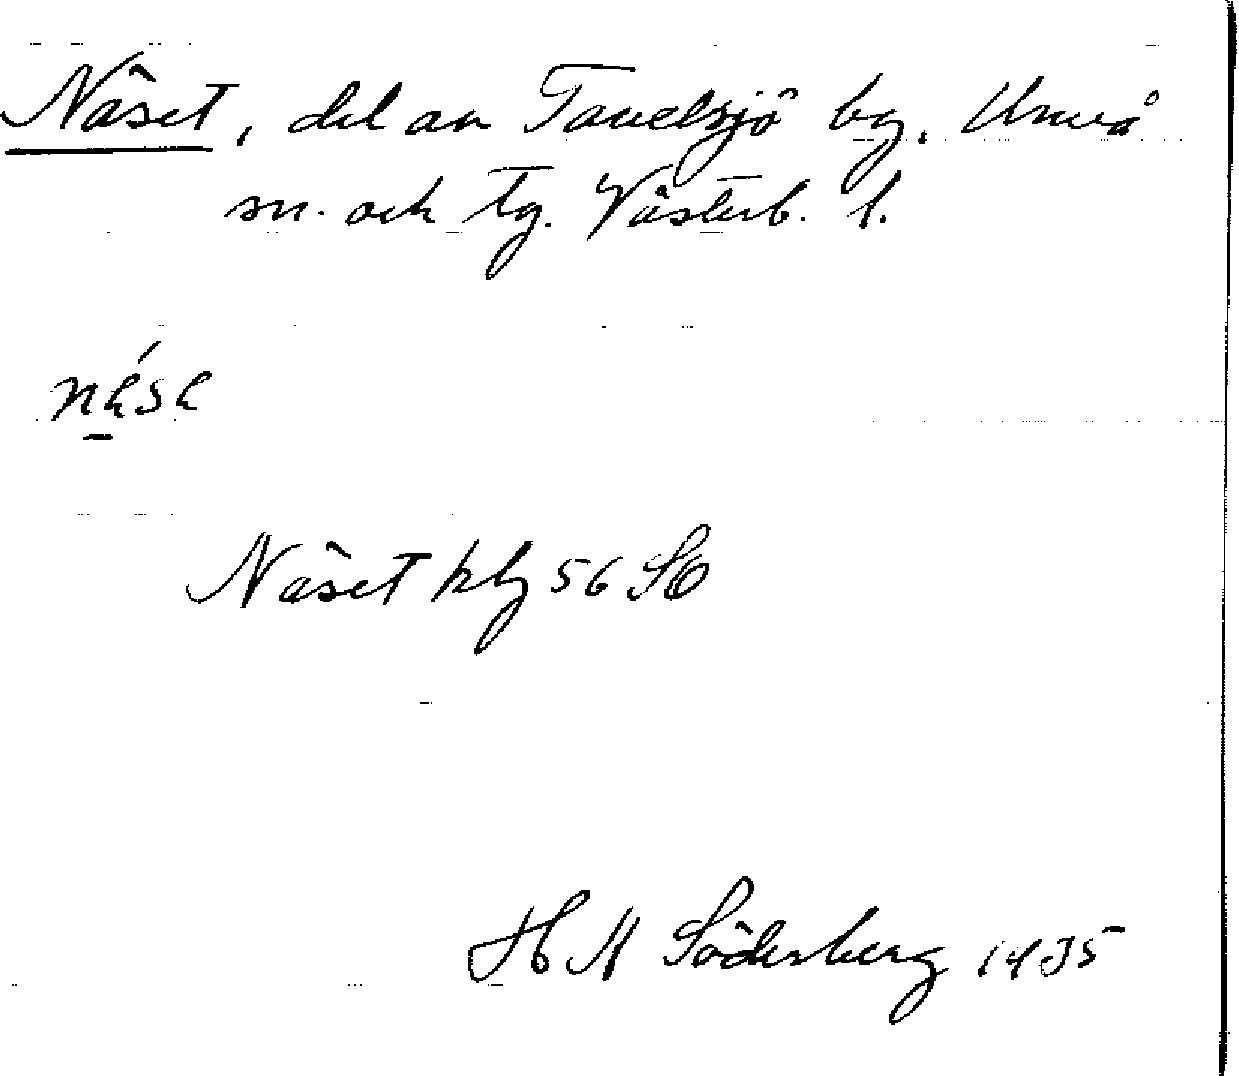 Näset, del av Tavelsjö by. Umeå
sn. och tg. Västerb. l.
Näset kbg 56 SO
H N Söderberg 1935